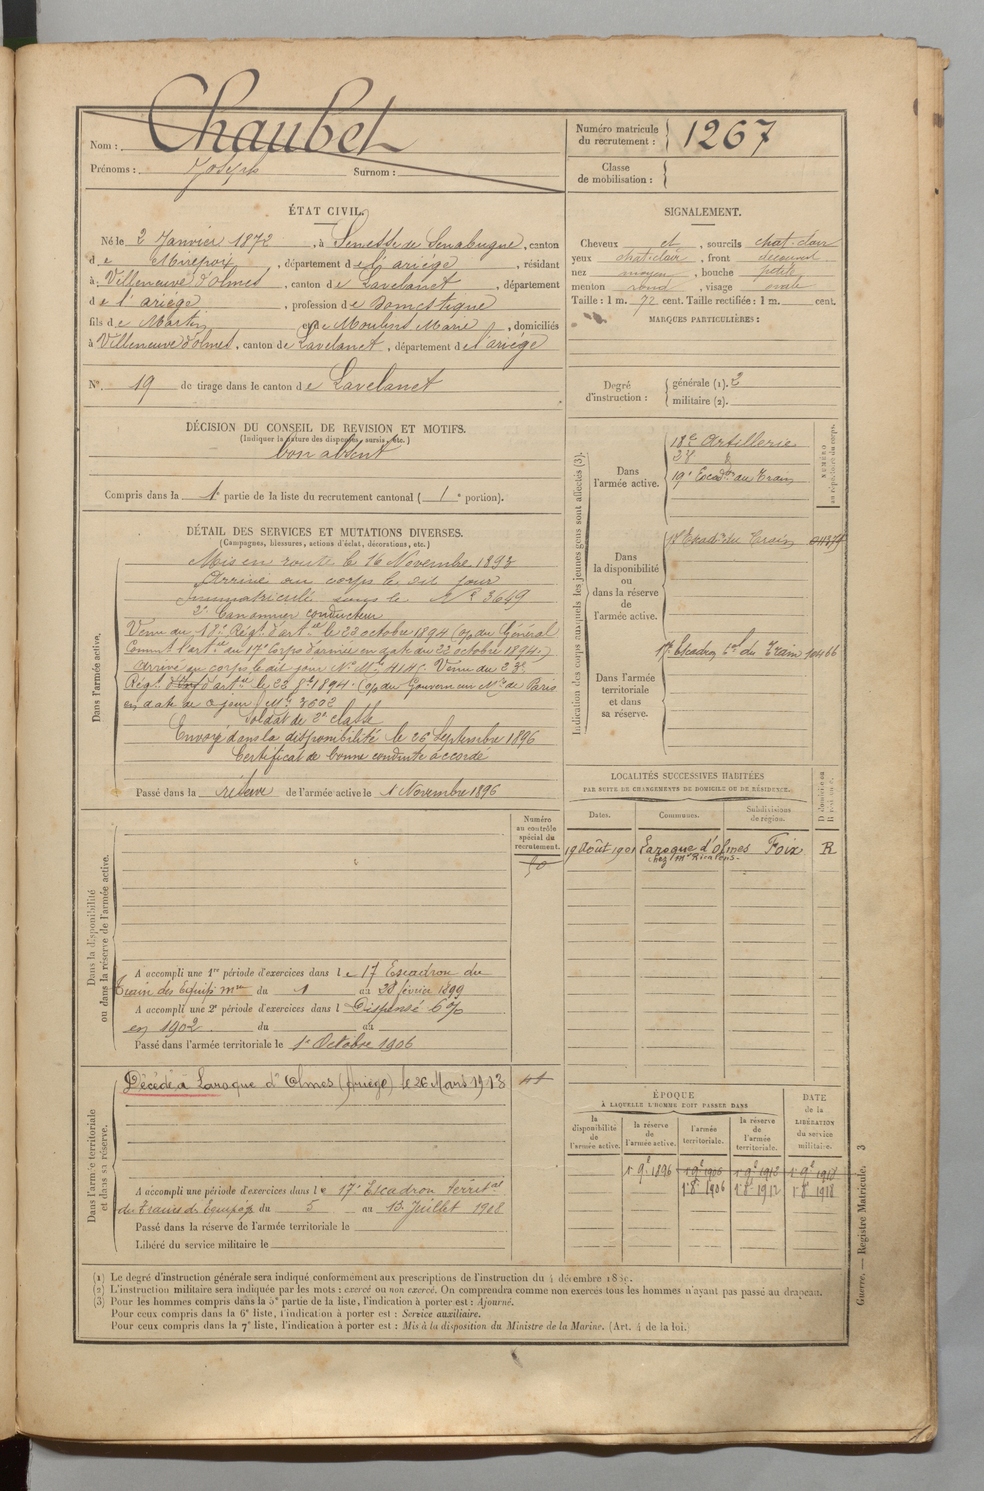 Nom : Chaubet
Prénoms : Joseph Surnom :
Numéro matricule du recrutement : 1267
Classe de mobilisation :
ÉTAT CIVIL.
Né le 2 Janvier 1872, à Senesse de Senabugue, canton
de Mirepoix, département de l'ariége, résidant
à Villeneuve d'olmes, canton de Lavelanet, département
de l'ariége, profession de Domestique
fils de Martin et de Moulins Marie, domiciliés
à Villeneuve d'olmes, canton de Lavelanet, département de l'ariége
N° 19 de tirage dans le canton de Lavelanet
SIGNALEMENT.
Cheveux et, sourcils chat-clair
yeux chat-clair, front découvert
nez moyen, bouche petite
menton rond, visage ovale
Taille : 1 m. 72 cent. Taille rectifiée : 1 m. cent.
MARQUES PARTICULIÈRES :
Degré d'instruction : générale (1). 2
militaire (2).
DÉCISION DU CONSEIL DE REVISION ET MOTIFS.
(Indiquer la nature des dispenses, sursis, etc.)
bon absent
Compris dans la 1e partie de la liste du recrutement cantonal ( 1e portion).
DÉTAIL DES SERVICES ET MUTATIONS DIVERSES.
(Campagnes, blessures, actions d'éclat, décorations, etc.)
Dans l'armée active.
Mis en route le 16 Novembre 1893
Arrivé au corps le dit jour
Immatriculé sous le N° 3649
2e Canonnier conducteur
Venu du 18e Régt d'artie le 23 octobre 1894 (o/n du Général
Commt l'artie du 17e Corps d'armée en date du 22 octobre 1894.)
Arrivé au corps le dit jour N° Mle 4145. Venu du 23e
Régt d'artie le 23 8bre 1894. (o/n du Gouverneur Mre de Paris
en date de ce jour) Mle 3692
Soldat de 2e classe
Envoyé dans la disponibilité le 26 Septembre 1896
Certificat de bonne conduite accordé
Passé dans la réserve de l'armée active le 1 Novembre 1896
Indication des corps auxquels les jeunes gens sont affectés (3).
NUMÉRO au répertoire du corps.
Dans l'armée active.
18e Artillerie
23e
19e Escadon du Train
Dans la disponibilité ou dans la réserve de l'armée active.
17 Escadn du Train
Dans l'armée territoriale et dans sa réserve.
17e Escadron teral du Train 10466
LOCALITÉS SUCCESSIVES HABITÉES
PAR SUITE DE CHANGEMENTS DE DOMICILE OU DE RÉSIDENCE.
Dates. Communes. Subdivisions de région. Domicile ou Résidence.
19 Août 1901 Laroque d'Olmes Foix R
chez Mr
Dans la disponibilité ou dans la réserve de l'armée active.
Numéro au contrôle spécial du recrutement.
A accompli une 1re période d'exercices dans le 17 Escadron du
Train des Equips mres du 1 au 28 février 1899
A accompli une 2e période d'exercices dans l Dispensé 6%
en 1902 du au
Passé dans l'armée territoriale le 1er Octobre 1906
Dans l'armée territoriale et dans sa réserve.
Décédé à Laroque d'Olmes (Ariège) le 26 Mars 1913
A accompli une période d'exercices dans le 17e Escadron territal
du Train des Equipages du 5 au 13 Juillet 1908
Passé dans la réserve de l'armée territoriale le
Libéré du service militaire le
ÉPOQUE
À LAQUELLE L'HOMME DOIT PASSER DANS
la disponibilité de l'armée active. la réserve de l'armée active. l'armée territoriale. la réserve de l'armée territoriale.
DATE de la LIBÉRATION du service militaire.
1er 9bre 1896 1er 9bre 1906 1er 9bre 1912 1er 9bre 1918
1er 8bre 1906 1er 8bre 1912 1er 8bre 1918
(1) Le degré d'instruction générale sera indiqué conformément aux prescriptions de l'instruction du 4 décembre 1889.
(2) L'instruction militaire sera indiquée par les mots : exercé ou non exercé. On comprendra comme non exercés tous les hommes n'ayant pas passé au drapeau.
(3) Pour les hommes compris dans la 5e partie de la liste, l'indication à porter est : Ajourné.
Pour ceux compris dans la 6e liste, l'indication à porter est : Service auxiliaire.
Pour ceux compris dans la 7e liste, l'indication à porter est : Mis à la disposition du Ministre de la Marine. (Art. 4 de la loi.)
Guerre. — Registre Matricule. 3